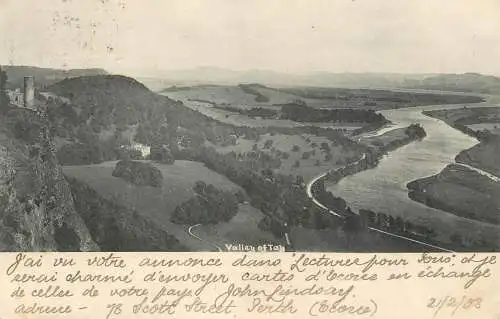 Valley of Tay
J'ai vu votre annonce dans "Lectures pour Tous" et je
serai charmé d'envoyer cartes d'Ecosse en échange
de celles de votre pays. John Lindsay,
adresse - 76 Scott Street, Perth (Ecosse)
21/2/03